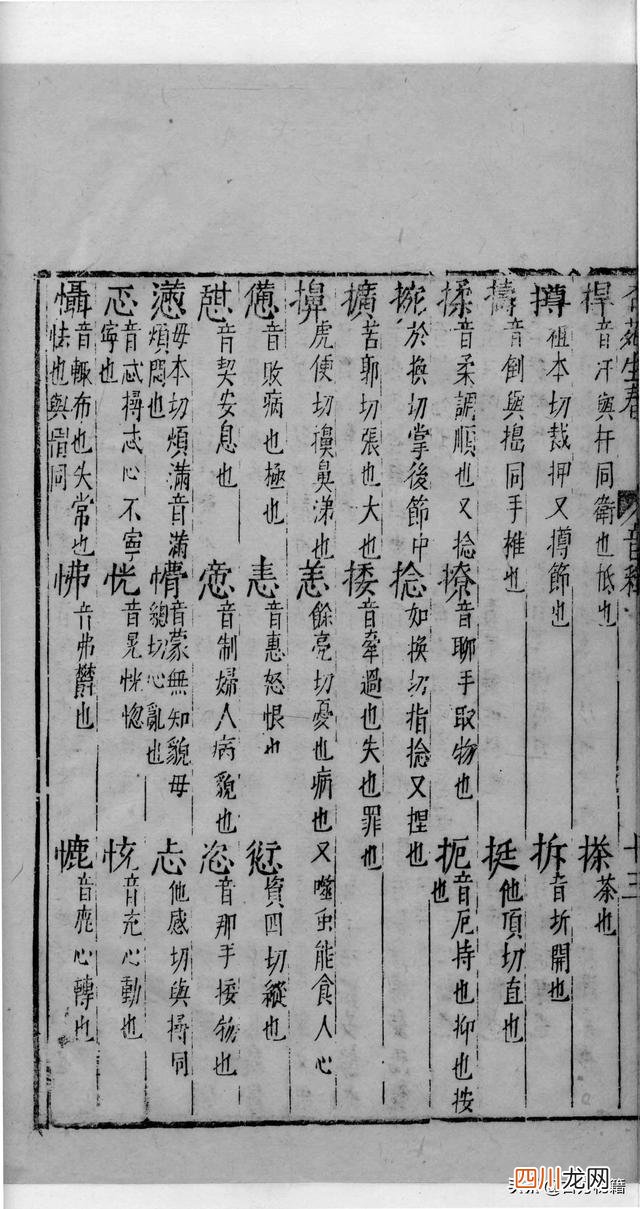 杏苑生春 音釋 十三
捍音汗與扞同衛也抵也 搽茶也
撙祖本切裁押又撙節也 拆音坼開也
擣音倒與搗同手椎也 挺他頂切直也
揉音柔調順也又捻 撩音聊手取物也 扼音厄持也抑也按也
捥於換切掌後節中 捻如換切指捻又捏也
擴苦郭切張也大也 捼音牽過也失也罪也
擤虎便切擤鼻涕也 恙餘亮切憂也病也又噬虫能食人心
憊音敗病也極也 恚音惠怒恨也 恣資四切縱也
憇音契安息也 瘛音制婦人病貌也 音那手捼物也
懣毋本切煩滿音滿煩悶也 懵音蒙無知貌毋總切心亂也 忐他感切與㝷同
忑音忒㝷忑心不寧寧也 恍音晃恍惚 音充心動也
懾音輒布也失常也怯也與慴同 怫音弗欝也 音鹿心轉也
四川龙网